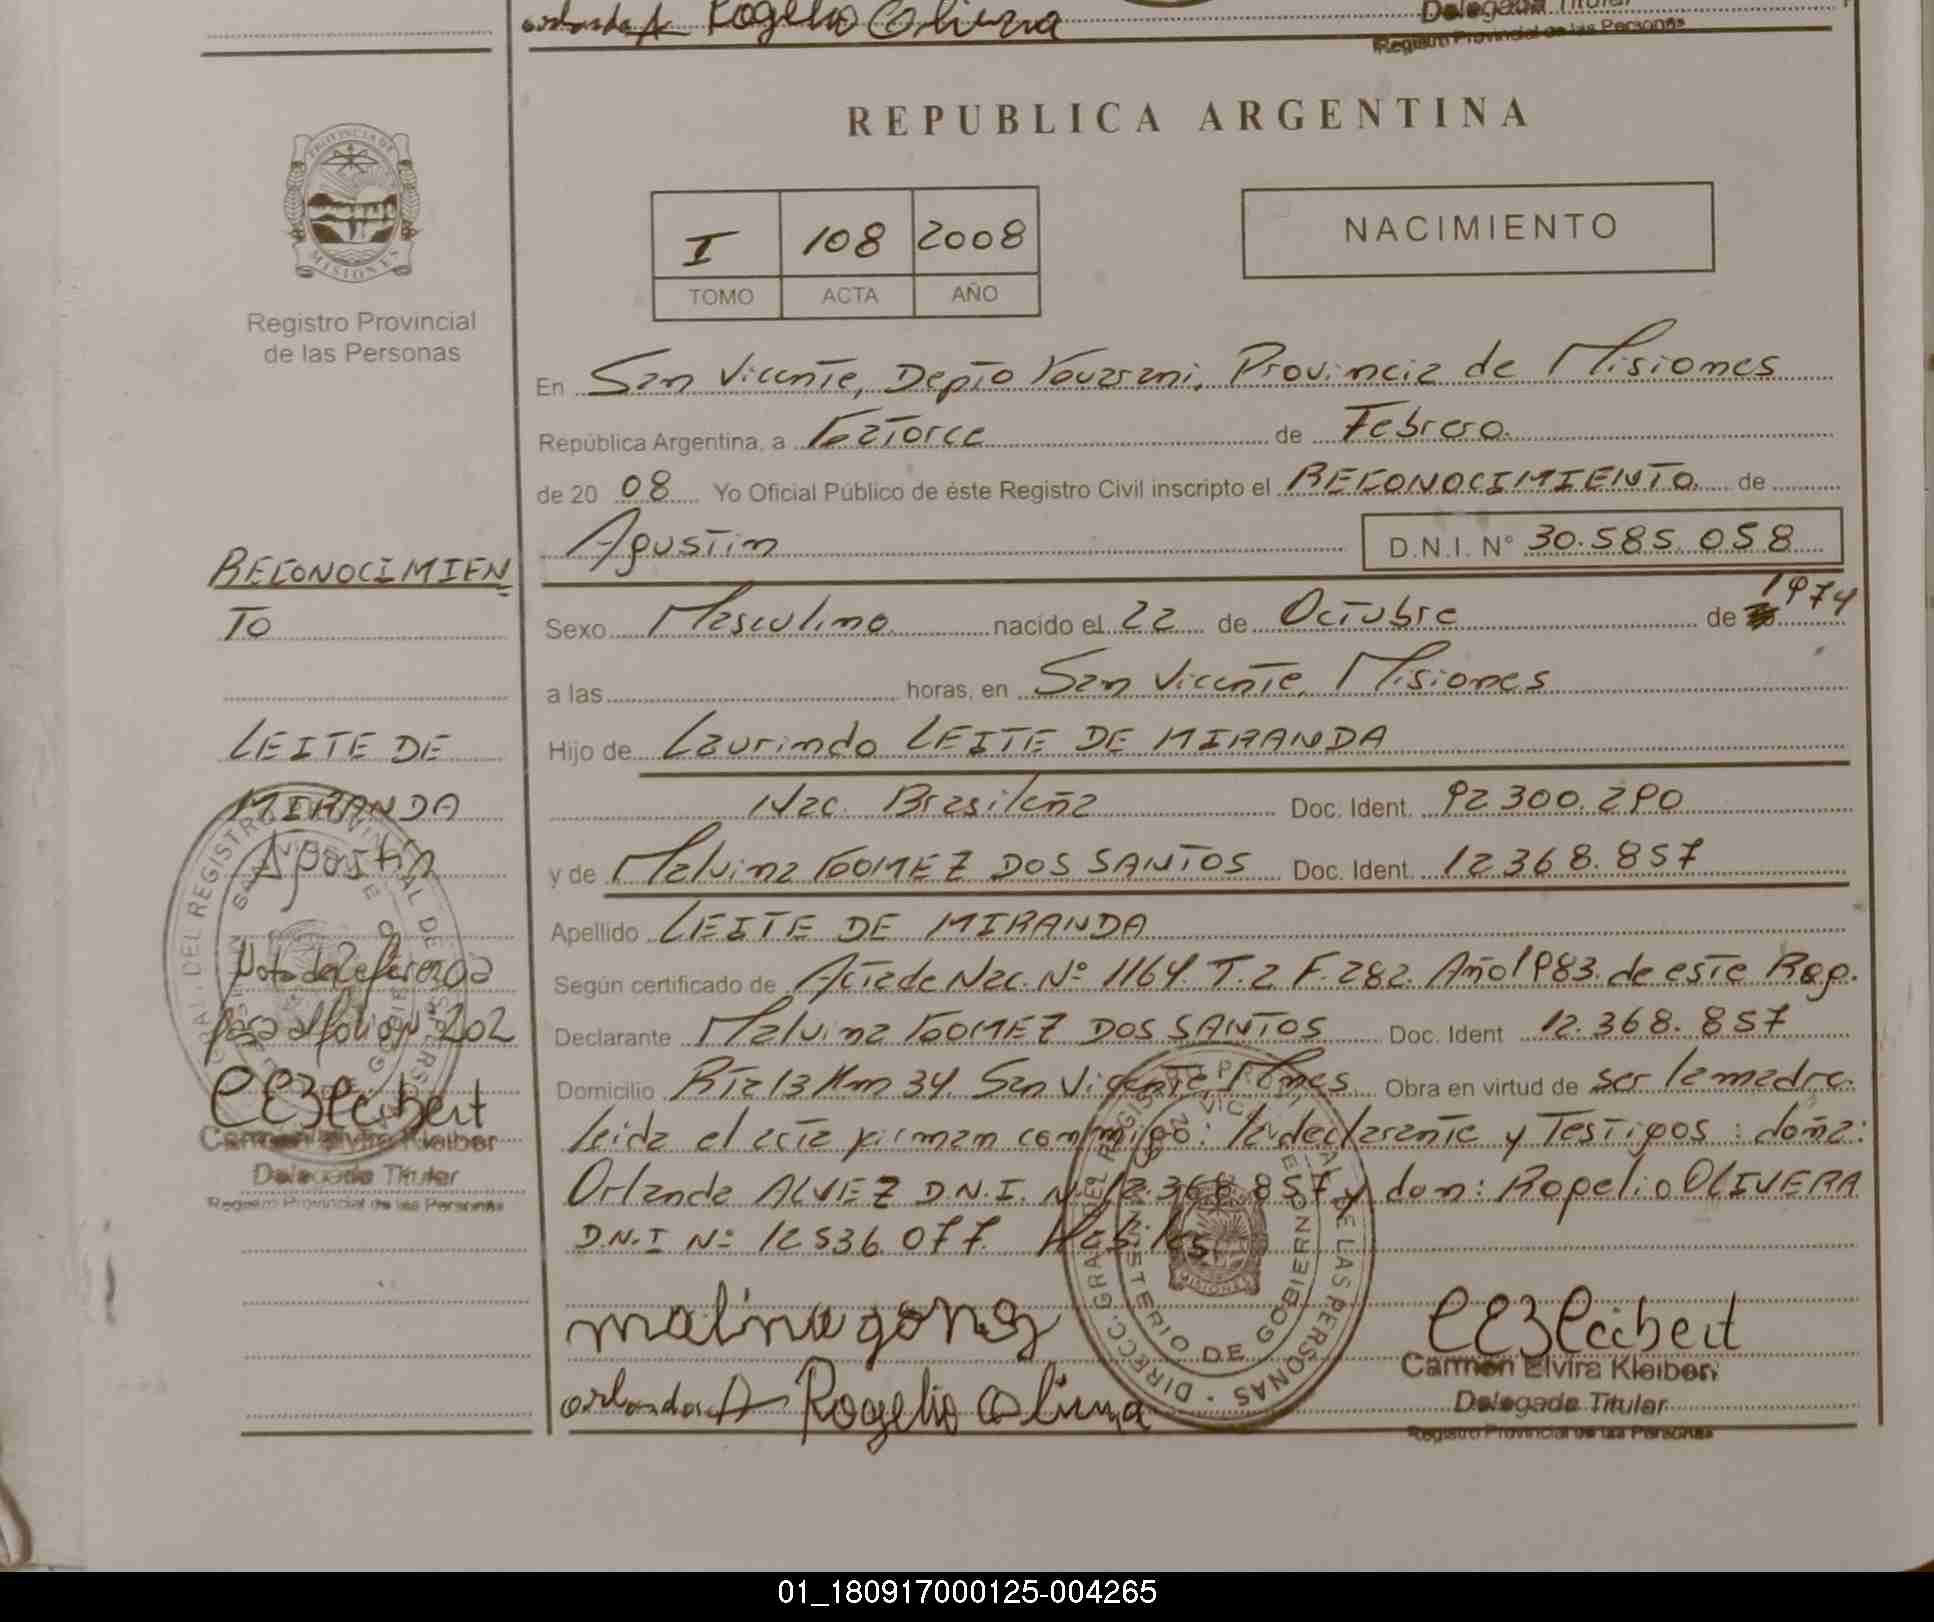 Orlando A Rogelio Olivera
Delegada Titular
Registro Provincial de las Personas
REPUBLICA ARGENTINA
PROVINCIA DE
MISIONES
I 108 2008
TOMO ACTA AÑO
NACIMIENTO
Registro Provincial
de las Personas
En San Vicente, Depto Guarani, Provincia de Misiones
República Argentina, a Catorce de Febrero
de 20 08 Yo Oficial Público de éste Registro Civil inscripto el RECONOCIMIENTO de
Agustin D.N.I. N° 30.585.058
RECONOCIMIEN
TO
Sexo Masculino nacido el 22 de Octubre de 1974
a las horas, en San Vicente, Misiones
LEITE DE
MIRANDA
Agustin
Hijo de Laurindo LEITE DE MIRANDA
Nac. Brasileña Doc. Ident. 92.300.290
y de Malvina GOMEZ DOS SANTOS Doc. Ident. 12.368.857
Apellido LEITE DE MIRANDA
Según certificado de Acta de Nac. Nº 1164. T.2. F.282. Año 1983. de este Reg.
Declarante Malvina GOMEZ DOS SANTOS Doc. Ident 12.368.857
Domicilio Rta 13 Km 34. San Vicente Mnes Obra en virtud de ser la madre.
Leida el acta firman conmigo: la declarante y Testigos: doña:
Orlanda ALVEZ D.N.I. Nº 12.368.857 y don: Rogelio OLIVERA
D.N.I Nº 12536.077. Habiles
Nota de Referencia
pasa al folio Nº 202
CEKleibert
Carmen Elvira Kleiber
Delegada Titular
Registro Provincial de las Personas
malina gomez
orlando A Rogelio Olivera
CEKleibert
Carmen Elvira Kleiber
Delegada Titular
Registro Provincial de las Personas
DIRECC. GRAL. DEL REGISTRO PROVINCIAL DE LAS PERSONAS
MINISTERIO DE GOBIERNO
01_180917000125-004265